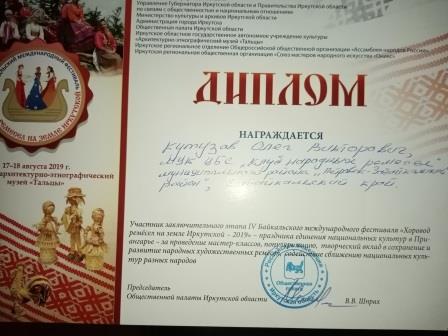 Управление Губернатора Иркутской области и Правительства Иркутской области
по связям с общественностью и национальным отношениям
Министерство культуры и архивов Иркутской области
Администрация города Иркутска
Общественная палата Иркутской области
Иркутское областное государственное автономное учреждение культуры
«Архитектурно-этнографический музей «Тальцы»
Иркутское региональное отделение Общероссийской общественной организации «Ассамблея народов России»
Иркутская региональная общественная организация «Союз мастеров народного искусства «Оникс»
МЕЖДУНАРОДНЫЙ ФЕСТИВАЛЬ
РЕМЁСЕЛ НА ЗЕМЛЕ ИРКУТСКОЙ
17–18 августа 2019 г.
архитектурно-этнографический
музей «Тальцы»
ДИПЛОМ
НАГРАЖДАЕТСЯ
Кутузов Олег Викторович,
МУК ЦБС „Клуб народных ремёсел"
муниципального района
район", Забайкальский край.
Участник заключительного этапа IV Байкальского международного фестиваля «Хоровод
ремёсел на земле Иркутской – 2019» – праздника единения национальных культур в При-
ангарье – за проведение мастер-классов, популяризацию, творческий вклад в сохранение и
развитие народных художественных ремёсел, содействие сближению национальных куль-
тур разных народов
Председатель
Общественной палаты Иркутской области
В.В. Шпрах